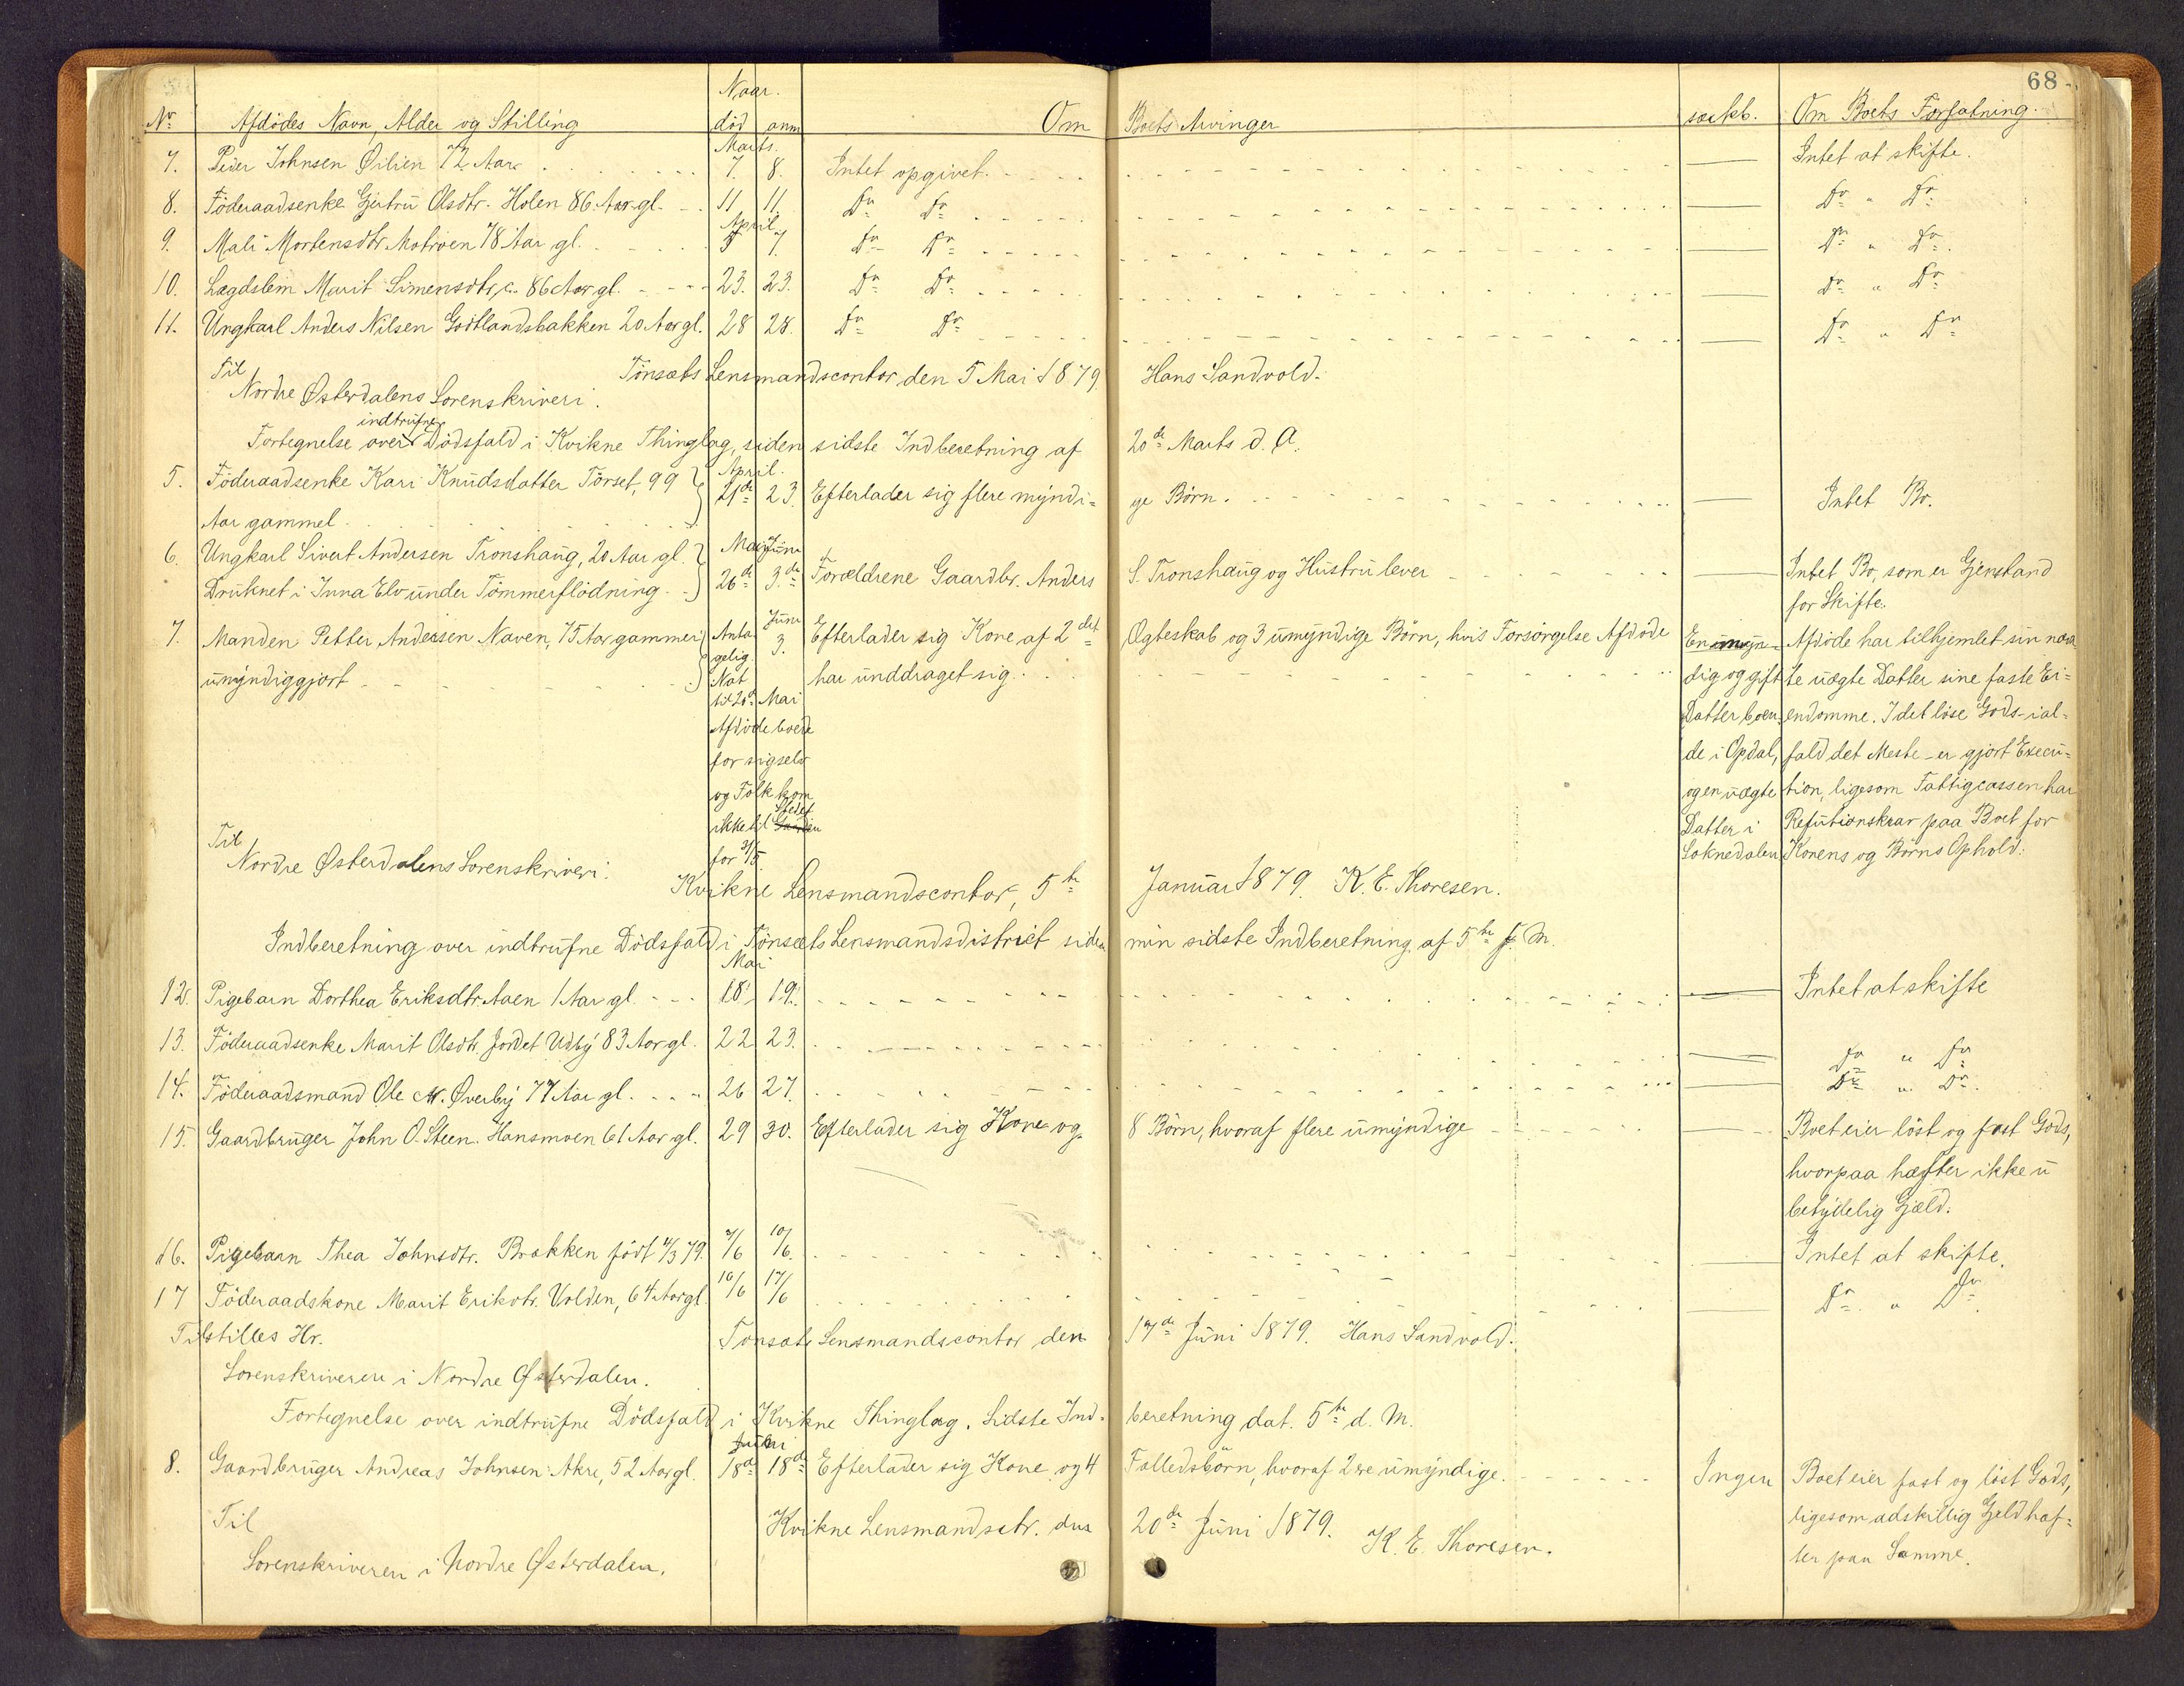 68
Naar.
Nr Afdödes Navn, Alder og Stilling död anm Om Boets Arvinger særkb. Om Boets Forfatning.
Marts.
7. Peder Johnsen Øilien 72 Aar 7. 8. Intet opgivet. Intet at skifte.
8. Föderaadsenke Gjertru Olsdtr. Holen 86 Aar gl. 11 11. Do Do Do " Do
April
9. Mali Mortensdtr Motroen 78 Aar gl. 5 7. Do Do Do " Do.
10. Lægdslem Marit Simensdtr, c. 86 Aar gl. 23. 23. Do Do Do " Do
11. Ungkarl Anders Nilsen Godtlandsbakken 20 Aar gl. 28 28. Do Do Do " Do
Til Tönsæts Lensmandscontor den 5 Mai 1879 Hans Sandvold.
Nordre Østerdalens Sorenskriveri.
indtrufne
Fortegnelse over Dödsfald i Kvikne Thinglag, siden sidste Indberetning af 20de Marts d. A.
April.
5. Föderaadsenke Kari Knudsdatter Törset, 99 21de 23. Efterlader sig flere myndi= ge Börn. Intet Bo.
Aar gammel.
Mai Juni
6. Ungkarl Sivert Andersen Tronshaug, 20 Aar gl.
Druknet i Inna Elv under Tömmerflödning 26de 3.de Forældrene Gaardbr. Anders S. Tronshaug og Hustru lever Intet Bo, som er Gjenstand
for Skifte.
7. Manden Petter Andersen Naven, 75 Aar gammel Anta= Juni 3. Efterlader sig Kone af 2det Ægteskab og 3 umyndige Börn, hvis Forsörgelse Afdöde En umyn= Afdöde har tilhjemlet sin næv
umyndiggjort gelig Nat har unddraget sig. dig og gift te uægte Datter sine faste Ei=
til 20de Mai Datter boen= endomme. I det löse Gods - ial=
Afdöde boede
for sigselv de i Opdal, fald det Meste - er gjort Execu=
og Folk kom og en uægte tion, ligesom Fattigcassen har
ikke til Gaarden Stedet Datter i Refutionskrav paa Boet for
for 31/5 Soknedalen Konens og Börns Ophold.
Til
Nordre Østerdalens Sorenskriveri.
Kvikne Lensmandscontor, 5te Januar 1879. K. E. Thoresen.
Indberetning over indtrufne Dödsfald i Tönsæts Lensmandsdistrict siden min sidste Indberetning af 5te f. M.
Mai
12. Pigebarn Dorthea Eriksdtr. Aaen 1 Aar gl. 18. 19. Intet at skifte
13. Föderaadsenke Marit Olsdtr. Jordet Udby 83 Aar gl. 22 23. Do " Do
14. Föderaadsmand Ole M. Øverby 77 Aar gl. 26 27. Do " Do.
15. Gaardbruger John O. Steen. Hansmoen 61 Aar gl. 29 30. Efterlader sig Kone og 8 Börn, hvoraf flere umyndige Boet eier löst og fast Gods,
hvorpaa hæfter ikke u
betydelig Gjæld.
16. Pigebarn Thea Johnsdtr. Brækken födt 4/3 79. 7/6 10/6. Intet at skifte.
17 Föderaadskone Marit Eriksdtr. Volden, 64 Aar gl. 10/6 17/6 Do. " Do.
Tilstilles Hr. Tønsæts Lensmandscontor den 17de Juni 1879. Hans Sandvold.
Sorenskriveren i Nordre Østerdalen.
Fortegnelse over indtrufne Dödsfald i Kvikne Thinglag. Sidste Ind= beretning dat. 5te d. M.
Juni
8. Gaardbruger Andreas Johnsen Akre, 52 Aar gl. 18de 18de Efterlader sig Kone og 4 Fælledsbörn, hvoraf 2 re umyndige. Ingen Boet eier fast og löst Gods,
ligesom adskillig Gjeld hæf=
ter paa Samme.
Til Kvikne Lensmandsctr. den 20de Juni 1879. K. E. Thoresen.
Sorenskriveren i Nordre Østerdalen.